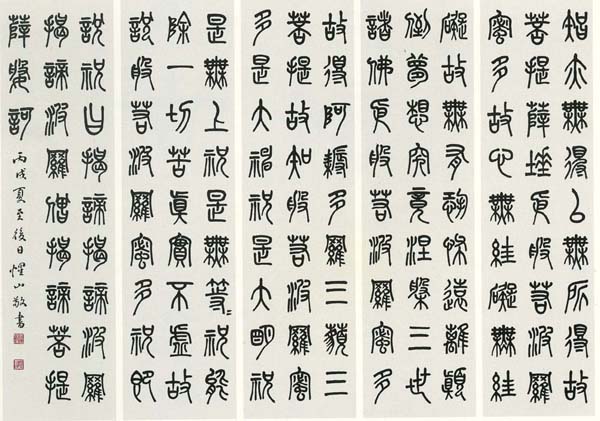 智亦無得以無所得故
菩提薩埵依般若波羅
蜜多故心無罣礙無罣
礙故無有恐怖遠離顛
倒夢想究竟涅槃三世
諸佛依般若波羅蜜多
故得阿耨多羅三藐三
菩提故知般若波羅蜜
多是大神祝是大明祝
是無上祝是無等〻祝能
除一切苦真實不虛故
說般若波羅蜜多祝即
說祝曰揭諦揭諦波羅
揭諦波羅僧揭諦菩提
薩婆訶
丙戌夏至後日山敬書